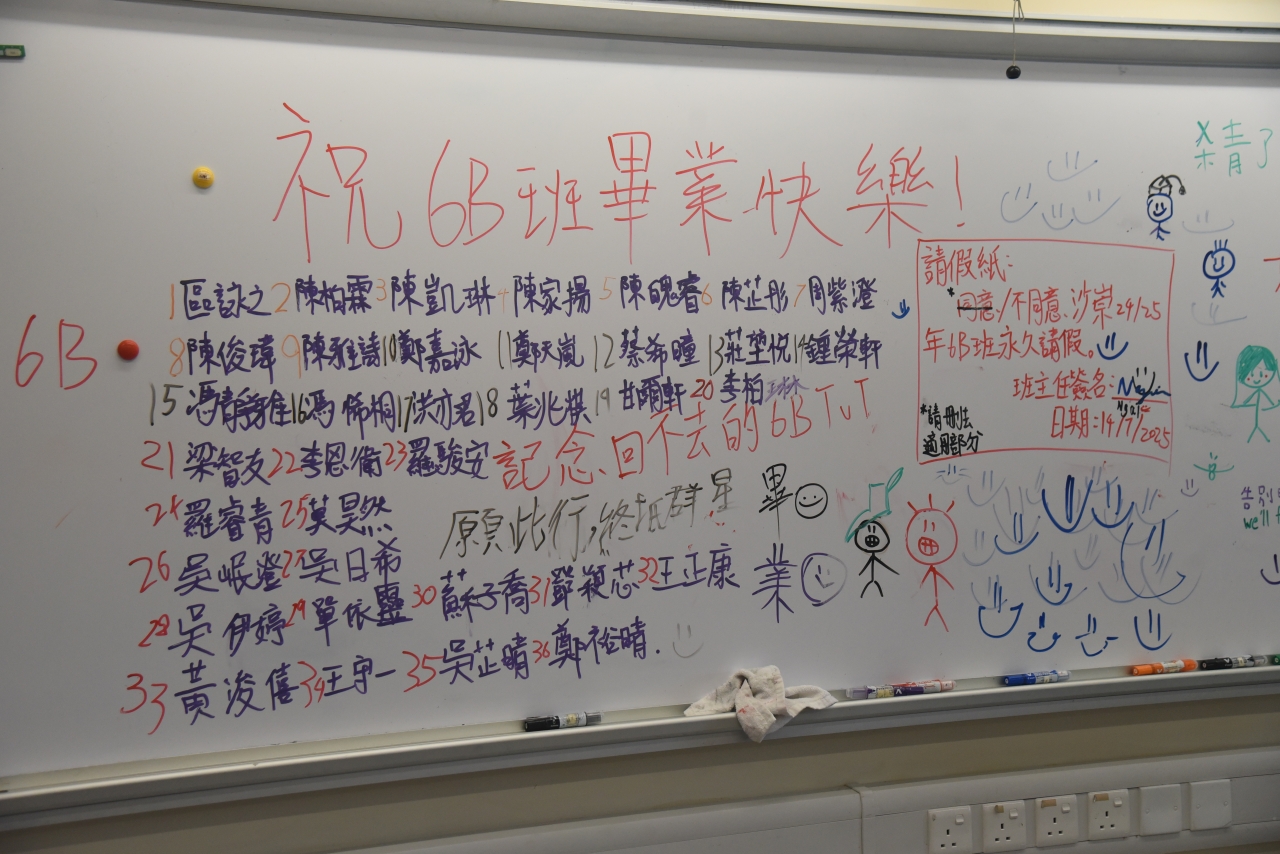 祝6B班畢業快樂!
6B
1區詠之 2陳柏霖 3陳凱琳 4陳家揚 5陳睿 6陳芷彤 7周紫澄
8陳俊瑋 9陳雅詩 10鄭嘉泳 11鄭天嵐 12蔡希曈 13莊悦 14鍾榮軒
15馮 16馮俙桐 17洪亦君 18葉兆祺 19甘爾軒 20李柏琳
21梁智友 22李恩衛 23羅駿安
記念回不去的6B TvT
24羅睿青 25莫昊然
願此行,終抵群星
26吳岷澄 27吳日希
28吳伊婷 29單依靈 30蘇子喬 31鄧穎芯 32王正康
33黃浚僖 34王宇一 35吳芷晴 36鄭裕晴.
畢
業
請假紙:
*同意/不同意 沙崇24/25
年6B班永久請假。
班主任簽名:
日期:14/7/2025
*請刪去
適用部分
青了
告別
we'll